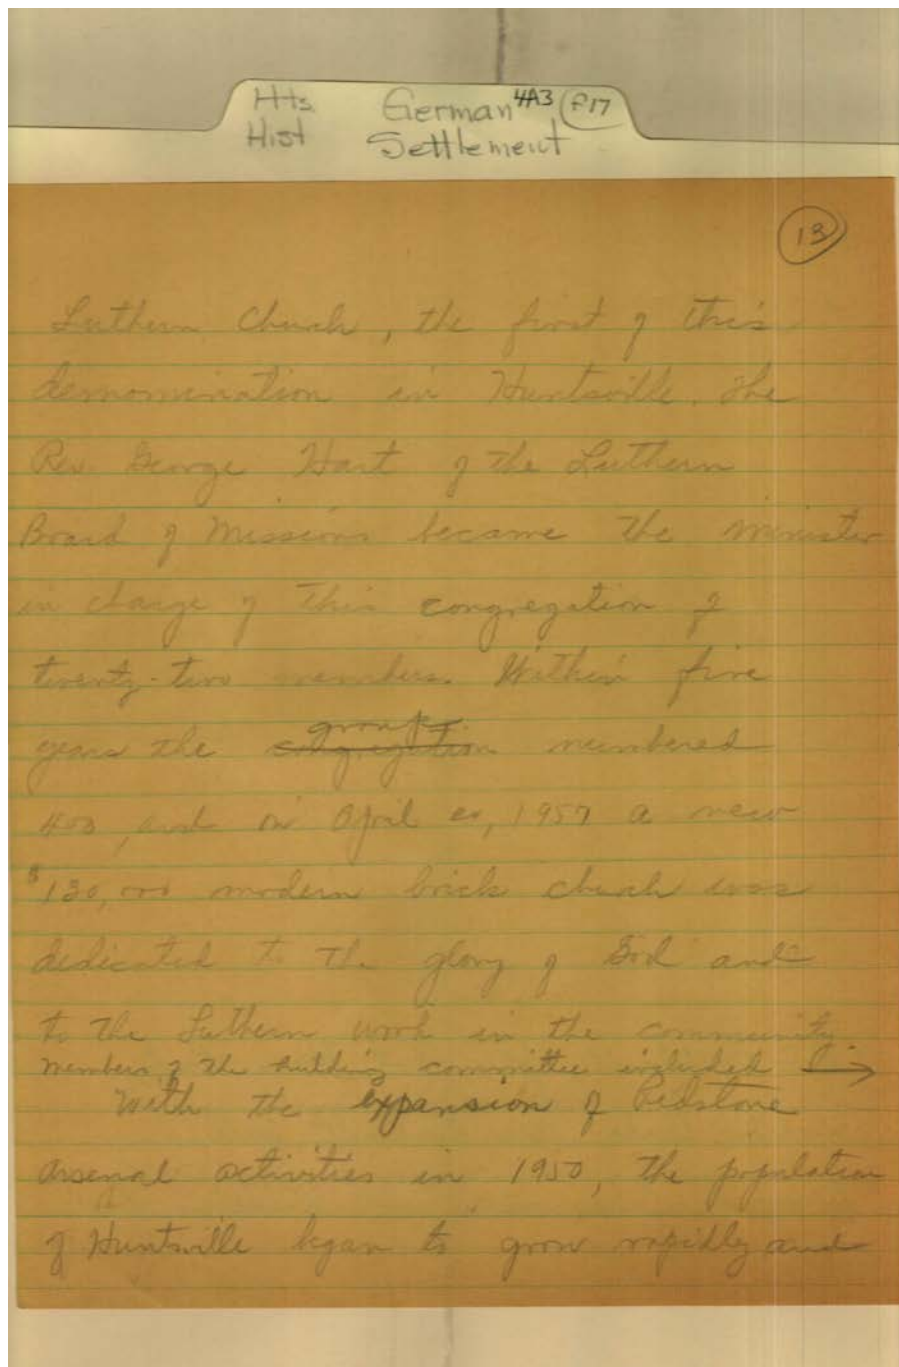 Hts. German 4A3 P17
Hist Settlement
13
Luthern Church, the first of this
demomination in Huntsville. The
Rev. George Hart of the Luthern
Board of Missions became the minister
in charge of this congregation of
twenty-two members. Within five
group
years the congregation numbered
400, and on April 20, 1957 a new
$130,000 modern brick church was
dedicated to the glory of God and
to the Luthern work in the community
members of the building committee included →
With the expansion of Redstone
Arsenal activities in 1950, the population
of Huntsville began to grow rapidly and